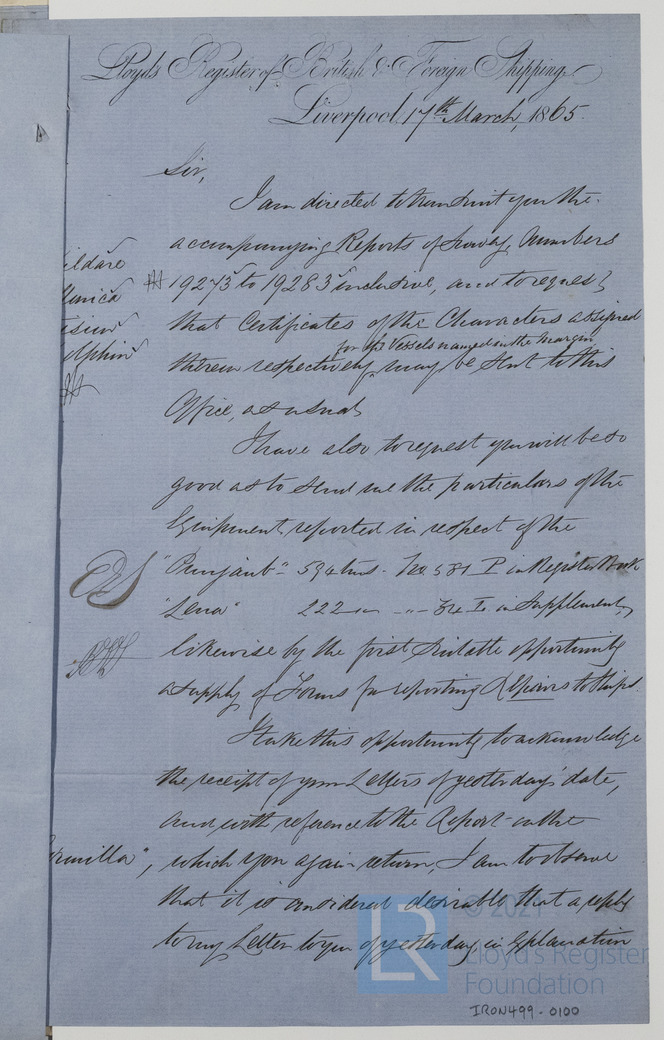 Lloyd's Register of British & Foreign Shipping
Liverpool, 17th March, 1865.
Sir,
I am directed to transmit you the
accompanying Reports of Survey, Numbers
19273 to 19283 inclusive, and to request
that Certificates of the Characters assigned
for the Vessels named in the margin
therein respectively, may be sent to this
Office, as usual.
I have also to request you will be so
good as to send me the particulars of the
Equipment reported in respect of the
"Punjaub" 594 tons. No. 581 P in Register Book
"Lena" 222 " in Supplement,
likewise by the first suitable opportunity
a supply of Forms for reporting Repairs to Ships.
I take this opportunity to acknowledge
the receipt of your Letters of yesterday's date,
and with reference to the Report on the
rmilla", which you again return, I am to observe
that it is considered desirable that a reply
to my Letter to you of yesterday, in explanation
ildare
phin
LR
© 2021
Lloyd's Register
Foundation
IRON499-0100